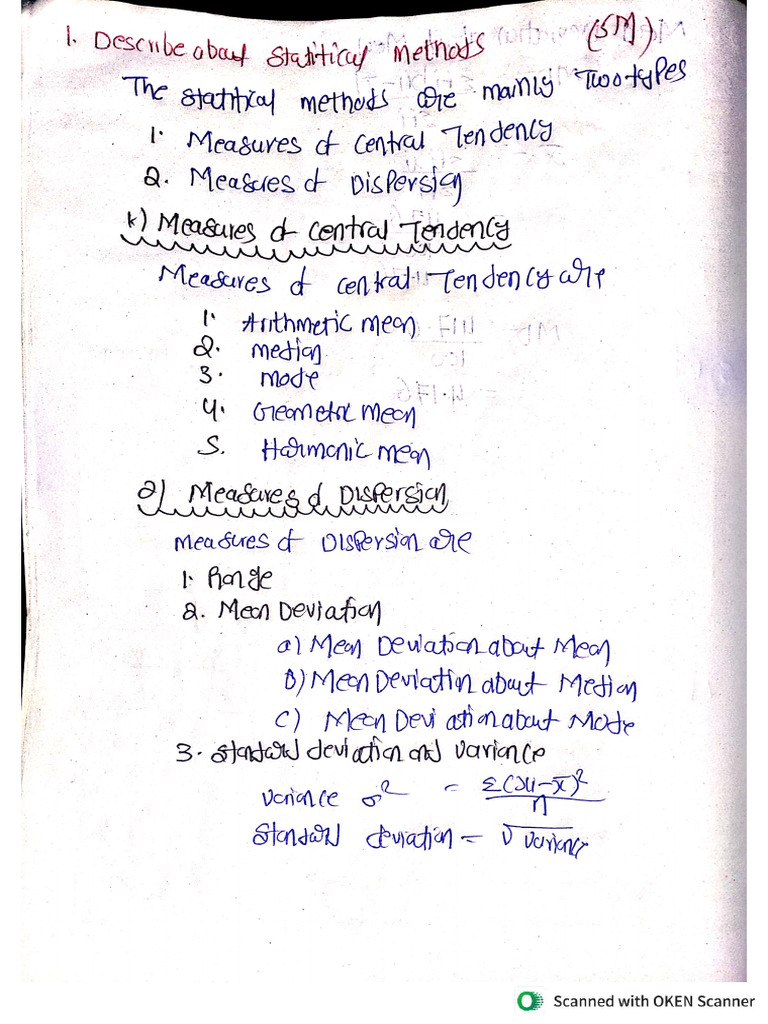 1. Describe about Statitical Methods (5M)
The Statitical methods are mainly Two types
1. Measures of Central Tendency
2. Measures of Dispersion
1) Measures of Central Tendency
Measures of central Tendency are
1. Arithmetic mean
2. median
3. mode
4. Geometric mean
5. Harmonic mean
2) Measures of Dispersion
Measures of Dispersion are
1. Range
2. Mean Deviation
a) Mean Deviation about Mean
b) Mean Deviation about Median
c) Mean Deviation about Mode
3. Standard deviation and variance
variance σ² = Σ(xi-x̄)²/n
Standard deviation = √variance
Scanned with OKEN Scanner